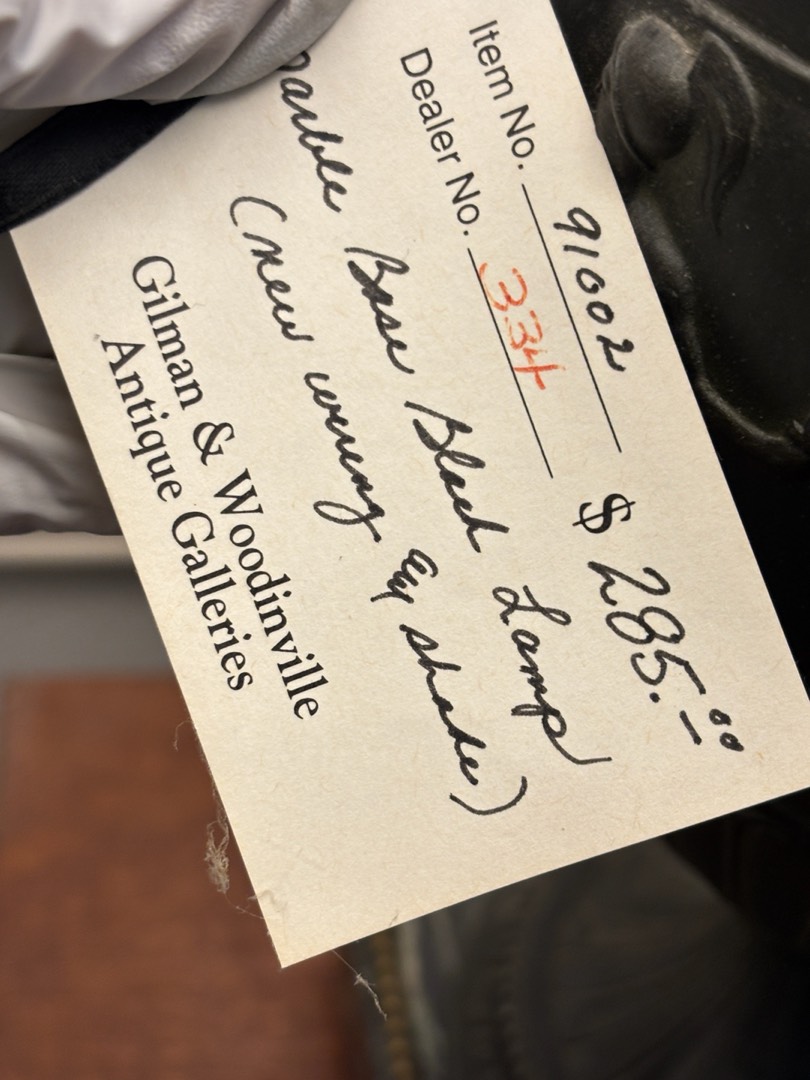 Item No. 91002 $ 285.00
Dealer No. 334
Marble Base Black Lamp
(new wiring & shade)
Gilman & Woodinville
Antique Galleries